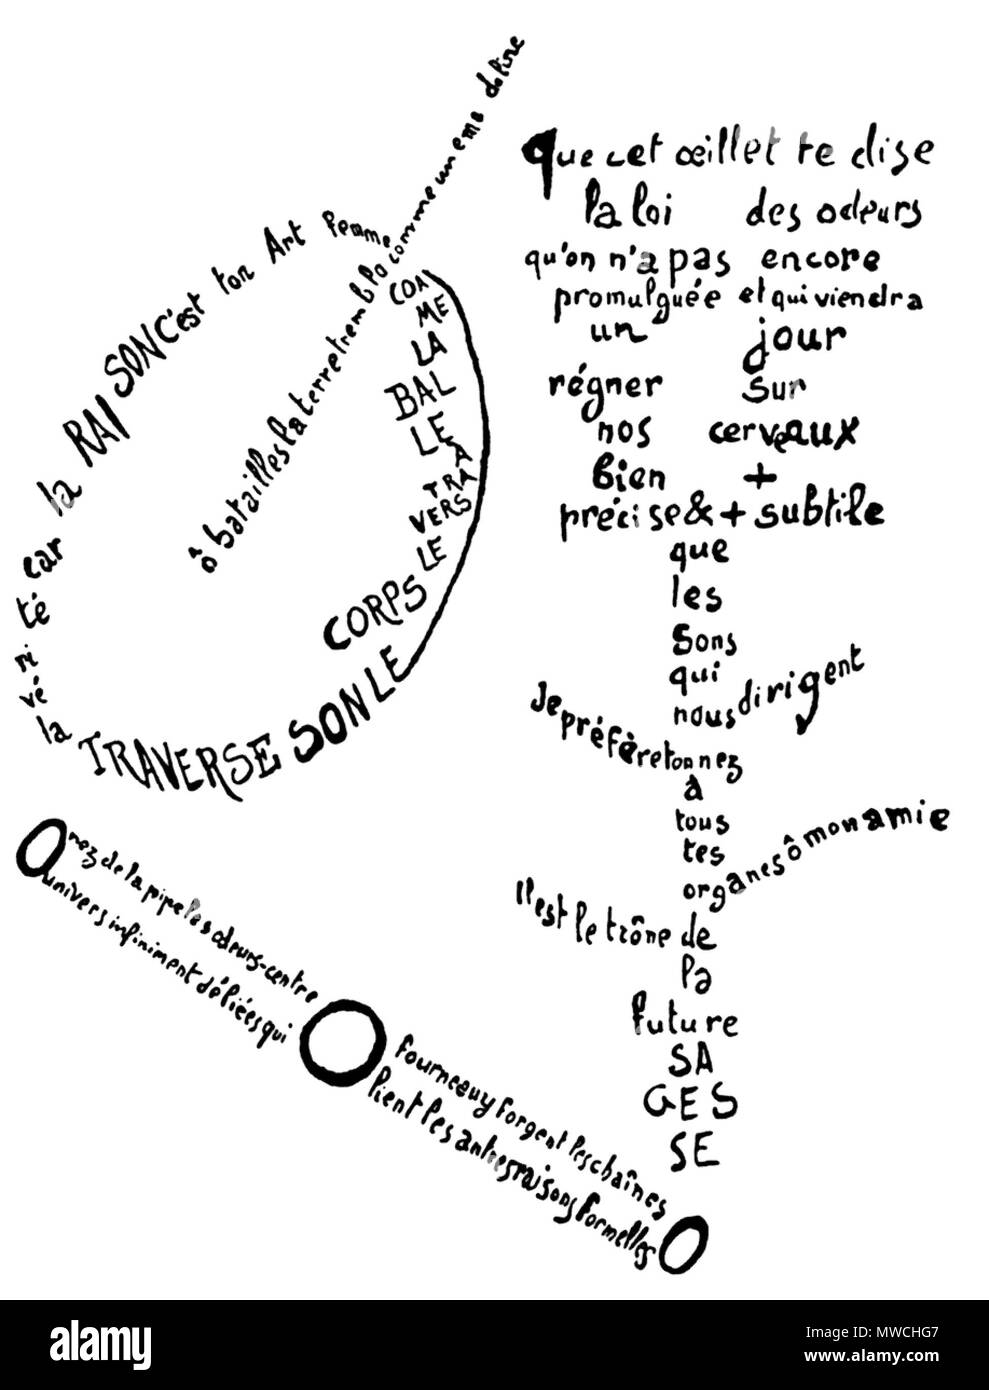 ô batailles la terre tremble comme une mandoline
COMME
LA
BAL
LE
A
TRA
VERS
LE
CORPS
LE SON TRAVERSE
la
vé
ri
té
car
la RAISON C'est ton Art Femme
Que cet œillet te dise
la loi des odeurs
qu'on n'a pas encore
promulguée et qui viendra
un jour
régner sur
nos cerveaux
bien +
précise & + subtile
que
les
sons
qui
nous dirigent
Je préfère ton nez
à
tous
tes
organes ô mon amie
Il est le trône de
la
future
SA
GES
SE
O nez de la pipe les odeurs-centre
O fourneau y forgent les chaînes
univers infiniment déliées qui
lient les autres raisons formelles O
a
alamy stock photo
MWCHG7
www.alamy.com